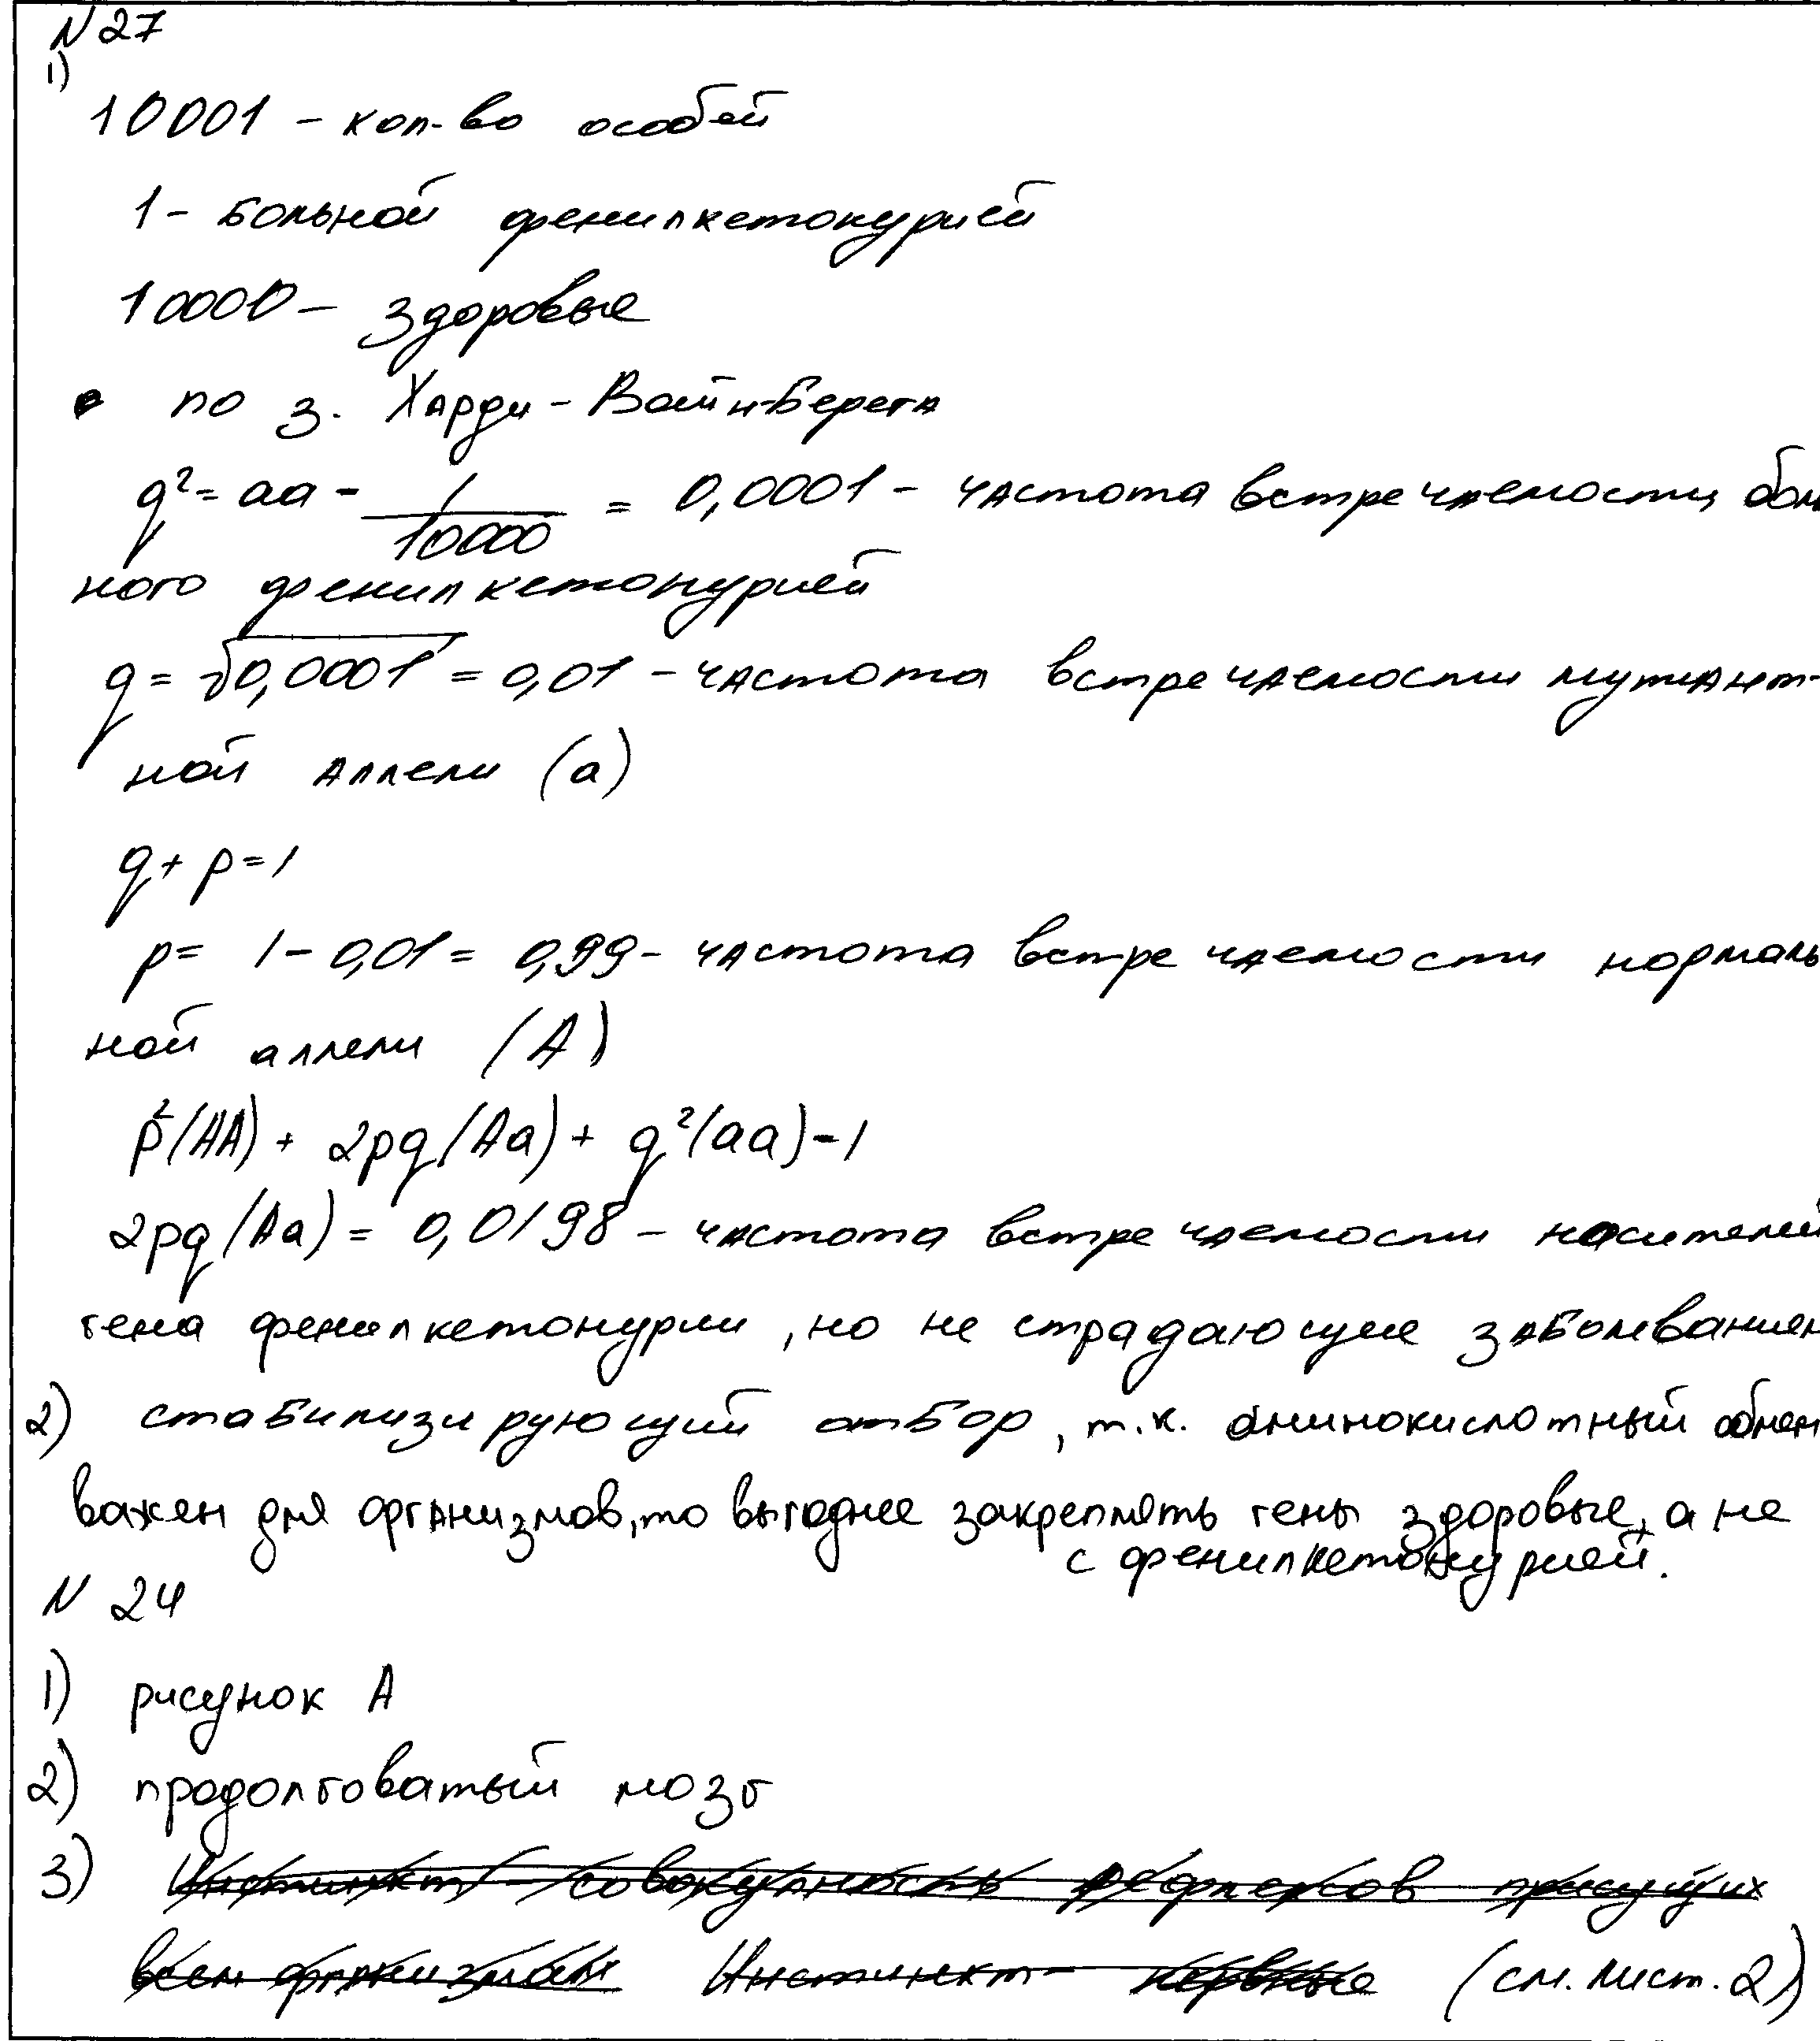 N 27
1)
10001 - кол-во особей
1 - больной фенилкетонурией
10000 - здоровые
по з. Харди - Вайнберега
q² = aa - 1/10000 = 0,0001 - частота встречаемости, боль
ного фенилкетонурией
q = √0,0001 = 0,01 - частота встречаемости мутант-
ной аллели (а)
q + p = 1
p = 1 - 0,01 = 0,99 - частота встречаемости нормаль
ной аллели (А)
p²(AA) + 2pq(Aa) + q²(aa) = 1
2pq(Aa) = 0,0198 - частота встречаемости носителей
гена фенилкетонурии, но не страдающие заболеванием
2) стабилизирующий отбор, т.к. аминокислотный обмен
важен для организмов, то выгоднее закреплять гены здоровые, а не
с фенилкетонурией.
N 24
1) рисунок А
2) продолговатый мозг
3) Инстинкт - совокупность рефлексов присущих
всем организмам Инстинкт - нервные (см. лист. 2)